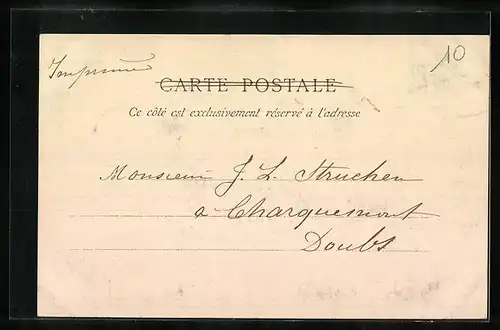 Imprimé
10
CARTE POSTALE
Ce côté est exclusivement réservé à l'adresse
Monsieur J. L. Struchen
a Charquemont
Doubs